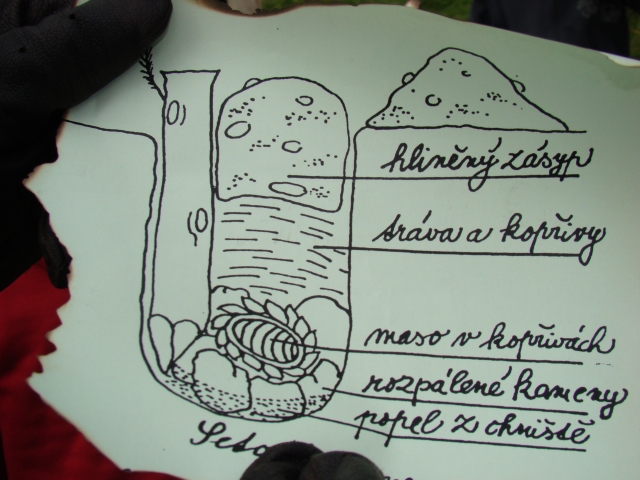 hliněný zásyp
tráva a kopřivy
maso v kopřivách
rozpálené kameny
popel z chniště